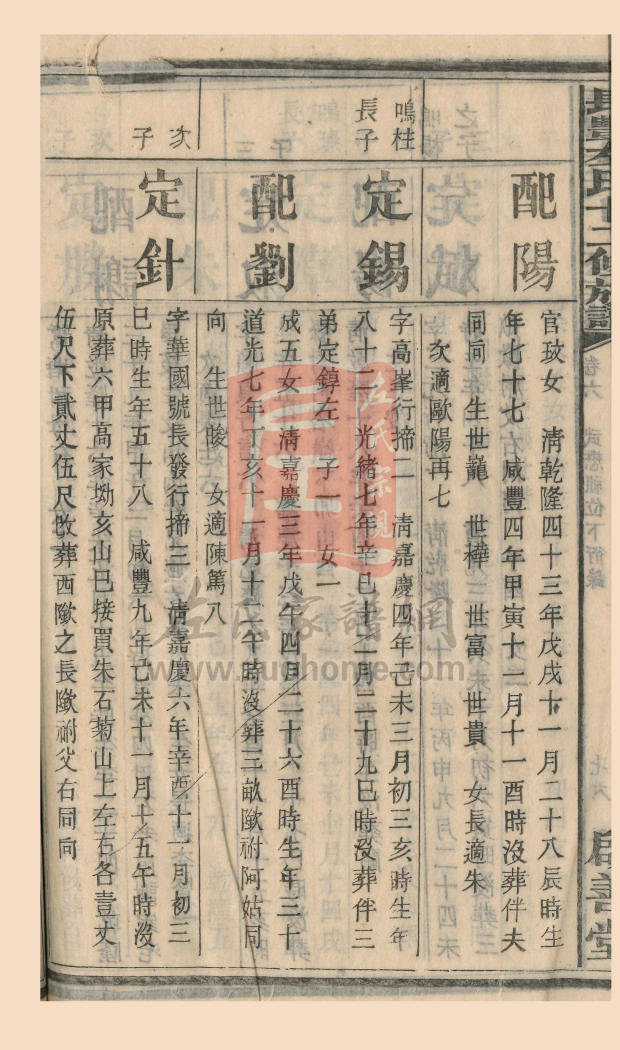 配陽
官玟女　清乾隆四十三年戊戌十一月二十八辰時生
年七十七　咸豐四年甲寅十二月十一酉時沒葬伴夫
同向　生世寵　世樺　世富　世貴　女長適朱
次適歐陽再七
鳴柱
長子
定錫
字高峯行摛二　清嘉慶四年己未三月初三亥時生年
八十三　光緒七年辛巳十二月二十九巳時沒葬伴三
弟定錞左　子一　女二
配劉
成五女　清嘉慶三年戊午四月二十六酉時生年三十
道光七年丁亥十一月十二午時沒葬三畝歐祔阿姑同
向　生世晙　女適陳篤八
次
子
定針
字華國號長發行摛三　清嘉慶六年辛酉十一月初三
巳時生年五十八　咸豐九年己未十一月十五午時沒
原葬六甲高家坳亥山巳接買朱石菊山上左右各壹丈
伍尺下貳丈伍尺改葬西歐之長歐祔父右同向
卷六
武懋祖位下衍錄
啟善堂
左氏家譜網
www.zuoshome.com